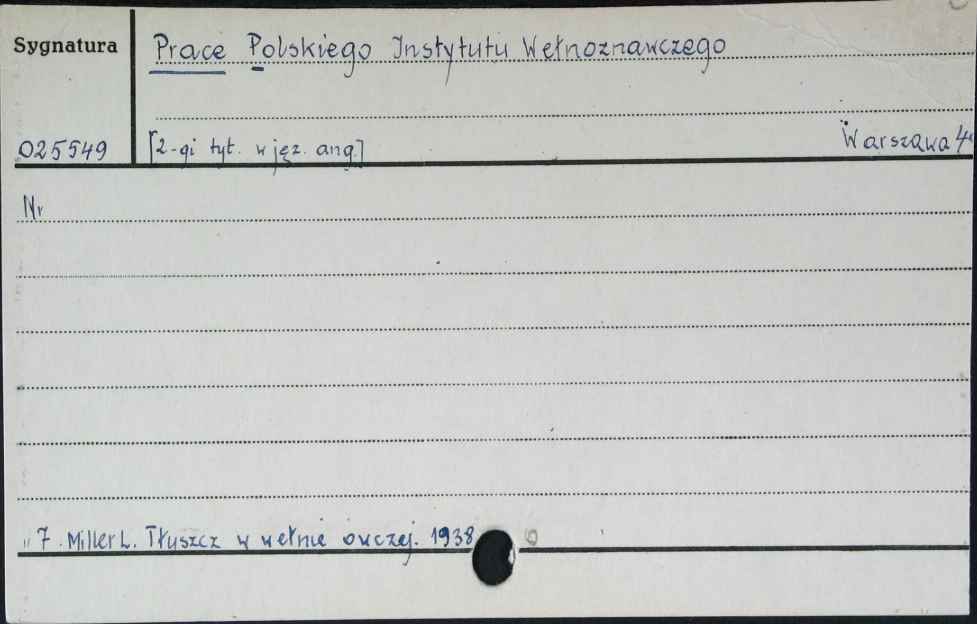 Sygnatura Prace Polskiego Instytutu Wełnoznawczego
025549 [2-gi tyt. w jęz. ang.] Warszawa 4°
Nr
" 7. Miller L. Tłuszcz w wełnie owczej. 1938